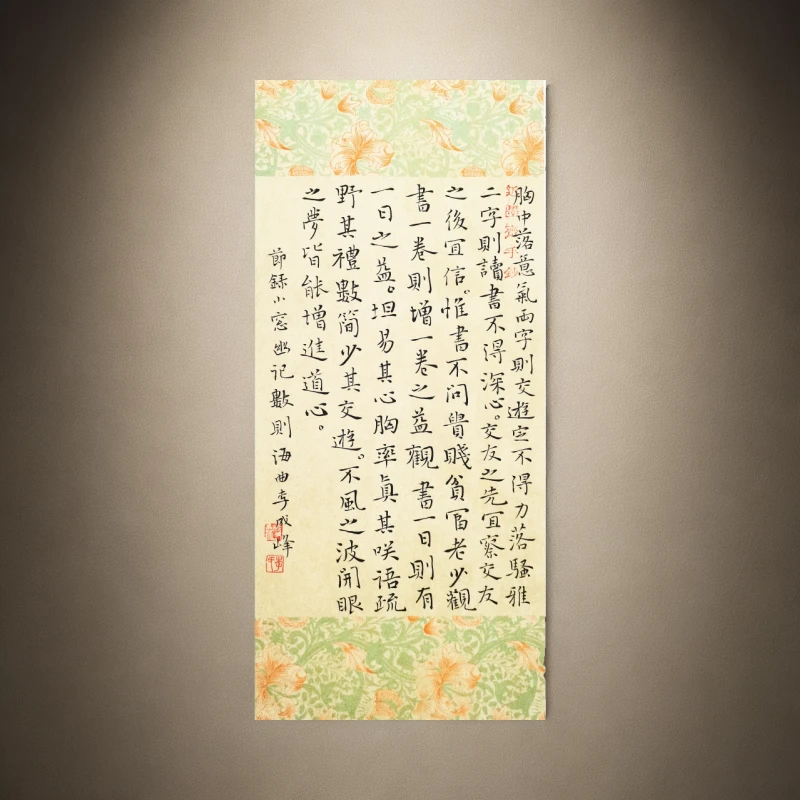 胸中落意氣两字則交遊定不得力落騷雅
二字則讀書不得深心。交友之先宜察交友
之後宜信。惟書不问貴賤貧富老少觀
書一卷則增一卷之益觀書一日則有
一日之益。坦易其心胸率真其咲語疏
野其禮數简少其交遊。不風之波開眼
之夢皆能增進道心。
節録小窓幽记數则海曲李成峰